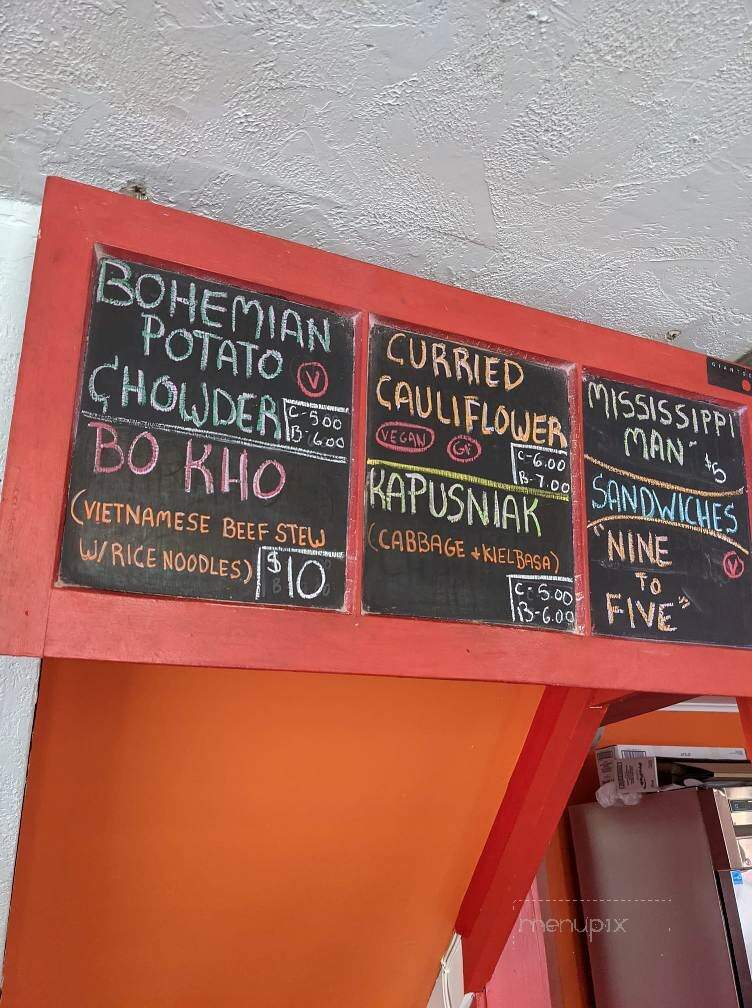 BOHEMIAN
POTATO
CHOWDER
V
C-5.00
B-6.00
BO KHO
(VIETNAMESE BEEF STEW
W/RICE NOODLES)
$10
CURRIED
CAULIFLOWER
VEGAN GF
C-6.00
B-7.00
KAPUSNIAK
(CABBAGE + KIELBASA)
C-5.00
B-6.00
MISSISSIPPI
MAN" $5
SANDWICHES
"NINE
TO
FIVE"
V
menupix